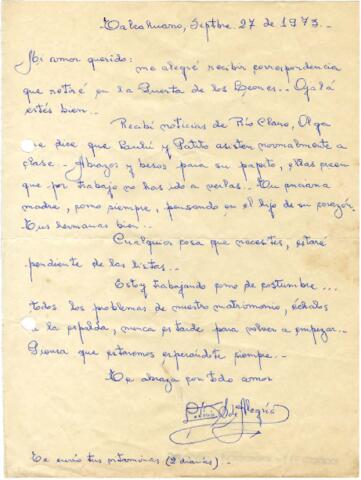 Talcahuano, Septbre. 27 de 1973.-
Mi amor querido:
me alegré recibir correspondencia
que retiré en la Puerta de los Leones.. Ojalá
estés bien..
Recibí noticias de Río Claro, Olga
me dice que Laudú y Patito asisten normalmente a
clase.- Abrazos y besos para su papito, ellas creen
que por trabajo no has ido a verlas.- Tu anciana
madre, como siempre, pensando en el hijo de su corazón.
Tus hermanas bien..
Cualquier cosa que necesites, estaré
pendiente de las listas..
Estoy trabajando como de costumbre...
todos los problemas de nuestro matrimonio, échalos
a la espalda, nunca es tarde para volver a empezar..
Piensa que estaremos esperándote siempre..-
Te abraza con todo amor
de Alegría
Te envío tus vitaminas (2 diarias).-